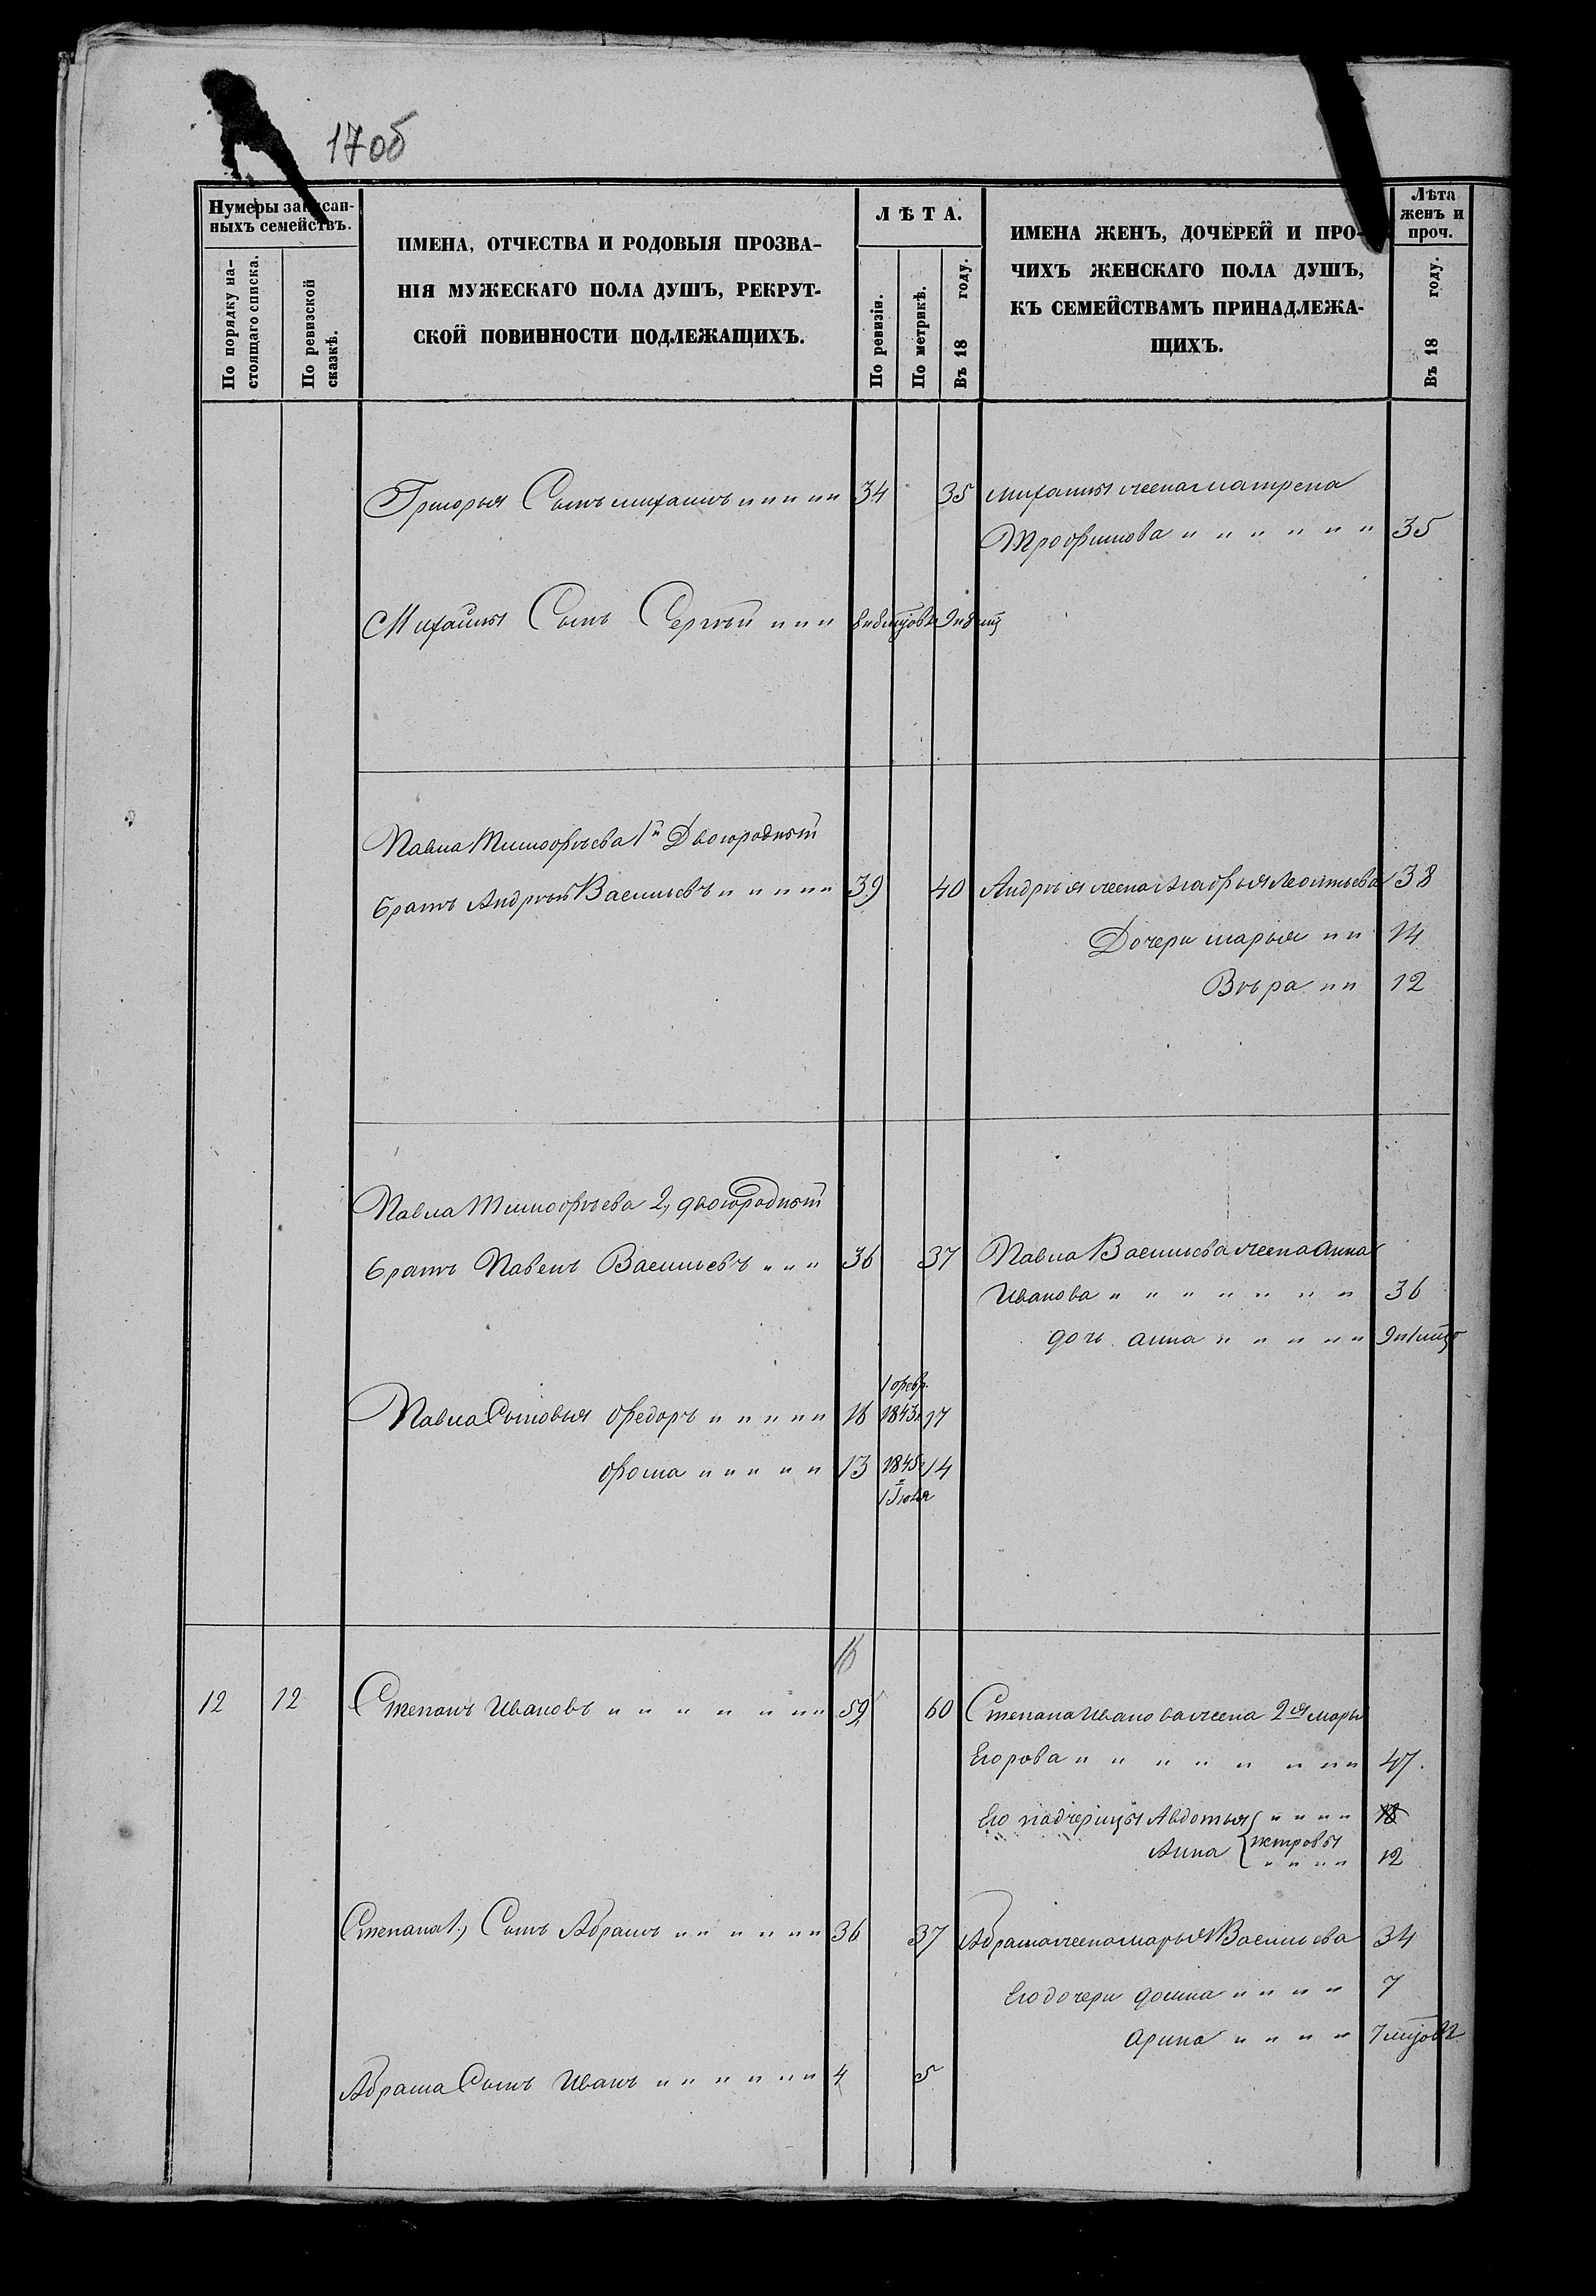 17об
Нумеры записан-
ныхъ семействъ.
По порядку на-
стоящаго списка.
По ревизской
сказкѣ.
ИМЕНА, ОТЧЕСТВА И РОДОВЫЯ ПРОЗВА-
НІЯ МУЖЕСКАГО ПОЛА ДУШЪ, РЕКРУТ-
СКОЙ ПОВИННОСТИ ПОДЛЕЖАЩИХЪ.
ЛѢТА.
По ревизіи.
По метрикѣ.
Въ 18 году.
ИМЕНА ЖЕНЪ, ДОЧЕРЕЙ И ПРО-
ЧИХЪ ЖЕНСКАГО ПОЛА ДУШЪ,
КЪ СЕМЕЙСТВАМЪ ПРИНАДЛЕЖА-
ЩИХЪ.
Лѣта
женъ и
проч.
Въ 18 году.
Григорья Сынъ михаилъ " " " " " 34 35 михаилы жена матрена
Трофимова " " " " " " 35
Михайлы Сынъ Сергѣй " " "
Павла Тимофѣева 1й Двоюродный
братъ Андрѣй Васильевъ " " " " " 39 40 Андрѣя жена Мафрья Леонтьева 38
Дочери марья " " 14
Вѣра " " 12
Павла Тимофѣева 2, двоюродный
братъ Павелъ Васильевъ " " " 36 37 Павла Васильева жена анна
Иванова " " " " " " " 36
дочь анна " " " " "
1 февр.
Павла Сыновья Федоръ " " " " " 16 1843 17
фома " " " " " 13 1845 14
1 Іюля
16
12 12 Степанъ Ивановъ " " " " " " " 59 60 Степана Иванова жена 2я марья
Егорова " " " " " " " " 47.
Его падчерицы Авдотья " " " " 18
Анна петровы " " " " 12
Степана 1.) Сынъ Абрамъ " " " " " " 36 37 Абрама жена марья Васильева 34
Его дочери домна " " " " 7
арина " " " "
Абрама Сынъ Иванъ " " " " " " " 4 5